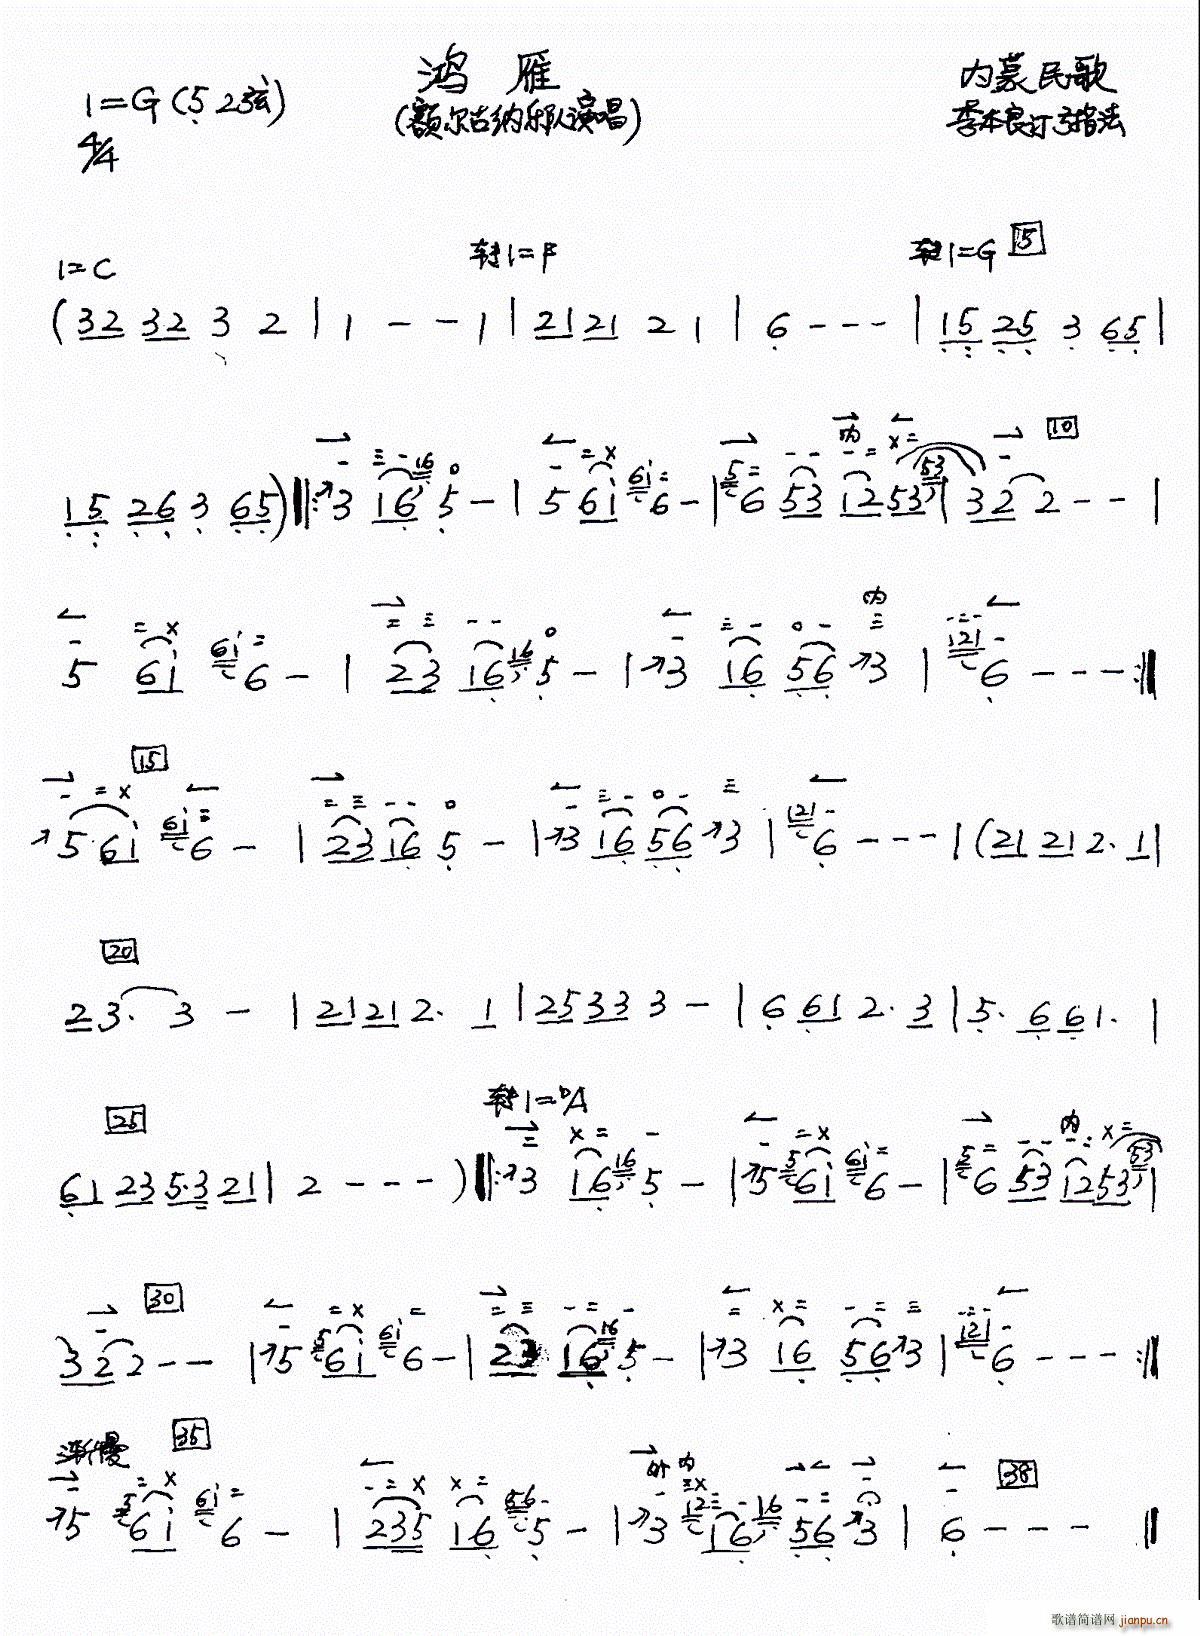 鸿雁
1=G(5̣ 2弦)
(额尔古纳乐队演唱)
内蒙民歌
4/4
李本良订弓指法
1=C 转1=F 转1=G 5
(32 32 3 2 | 1 - - 1 | 21 21 2 1 | 6 - - - | 15 25 3 65 |
10
15 26 3 65) ‖: 3 16 5 - | 5 61 6 - | 6 53 12 53 | 32 2 - - |
5 61 6 - | 23 16 5 - | 3 16 56 3 | 6 - - - :‖
15
5 61 6 - | 23 16 5 - | 3 16 56 3 | 6 - - - | (21 21 2. 1 |
20
23. 3 - | 21 21 2. 1 | 25 33 3 - | 6 61 2. 3 | 5. 6 61. |
25 转1=♭A
61 23 5.3 21 | 2 - - - ) ‖: 3 16 5 - | 5 61 6 - | 6 53 12 53 |
30
32 2 - - | 5 61 6 - | 23 16 5 - | 3 16 56 3 | 6 - - - :‖
渐慢 35 外 内 38
5 61 6 - | 235 16 5 - | 3 16 56 3 | 6 - - - ‖
歌谱简谱网 jianpu.cn